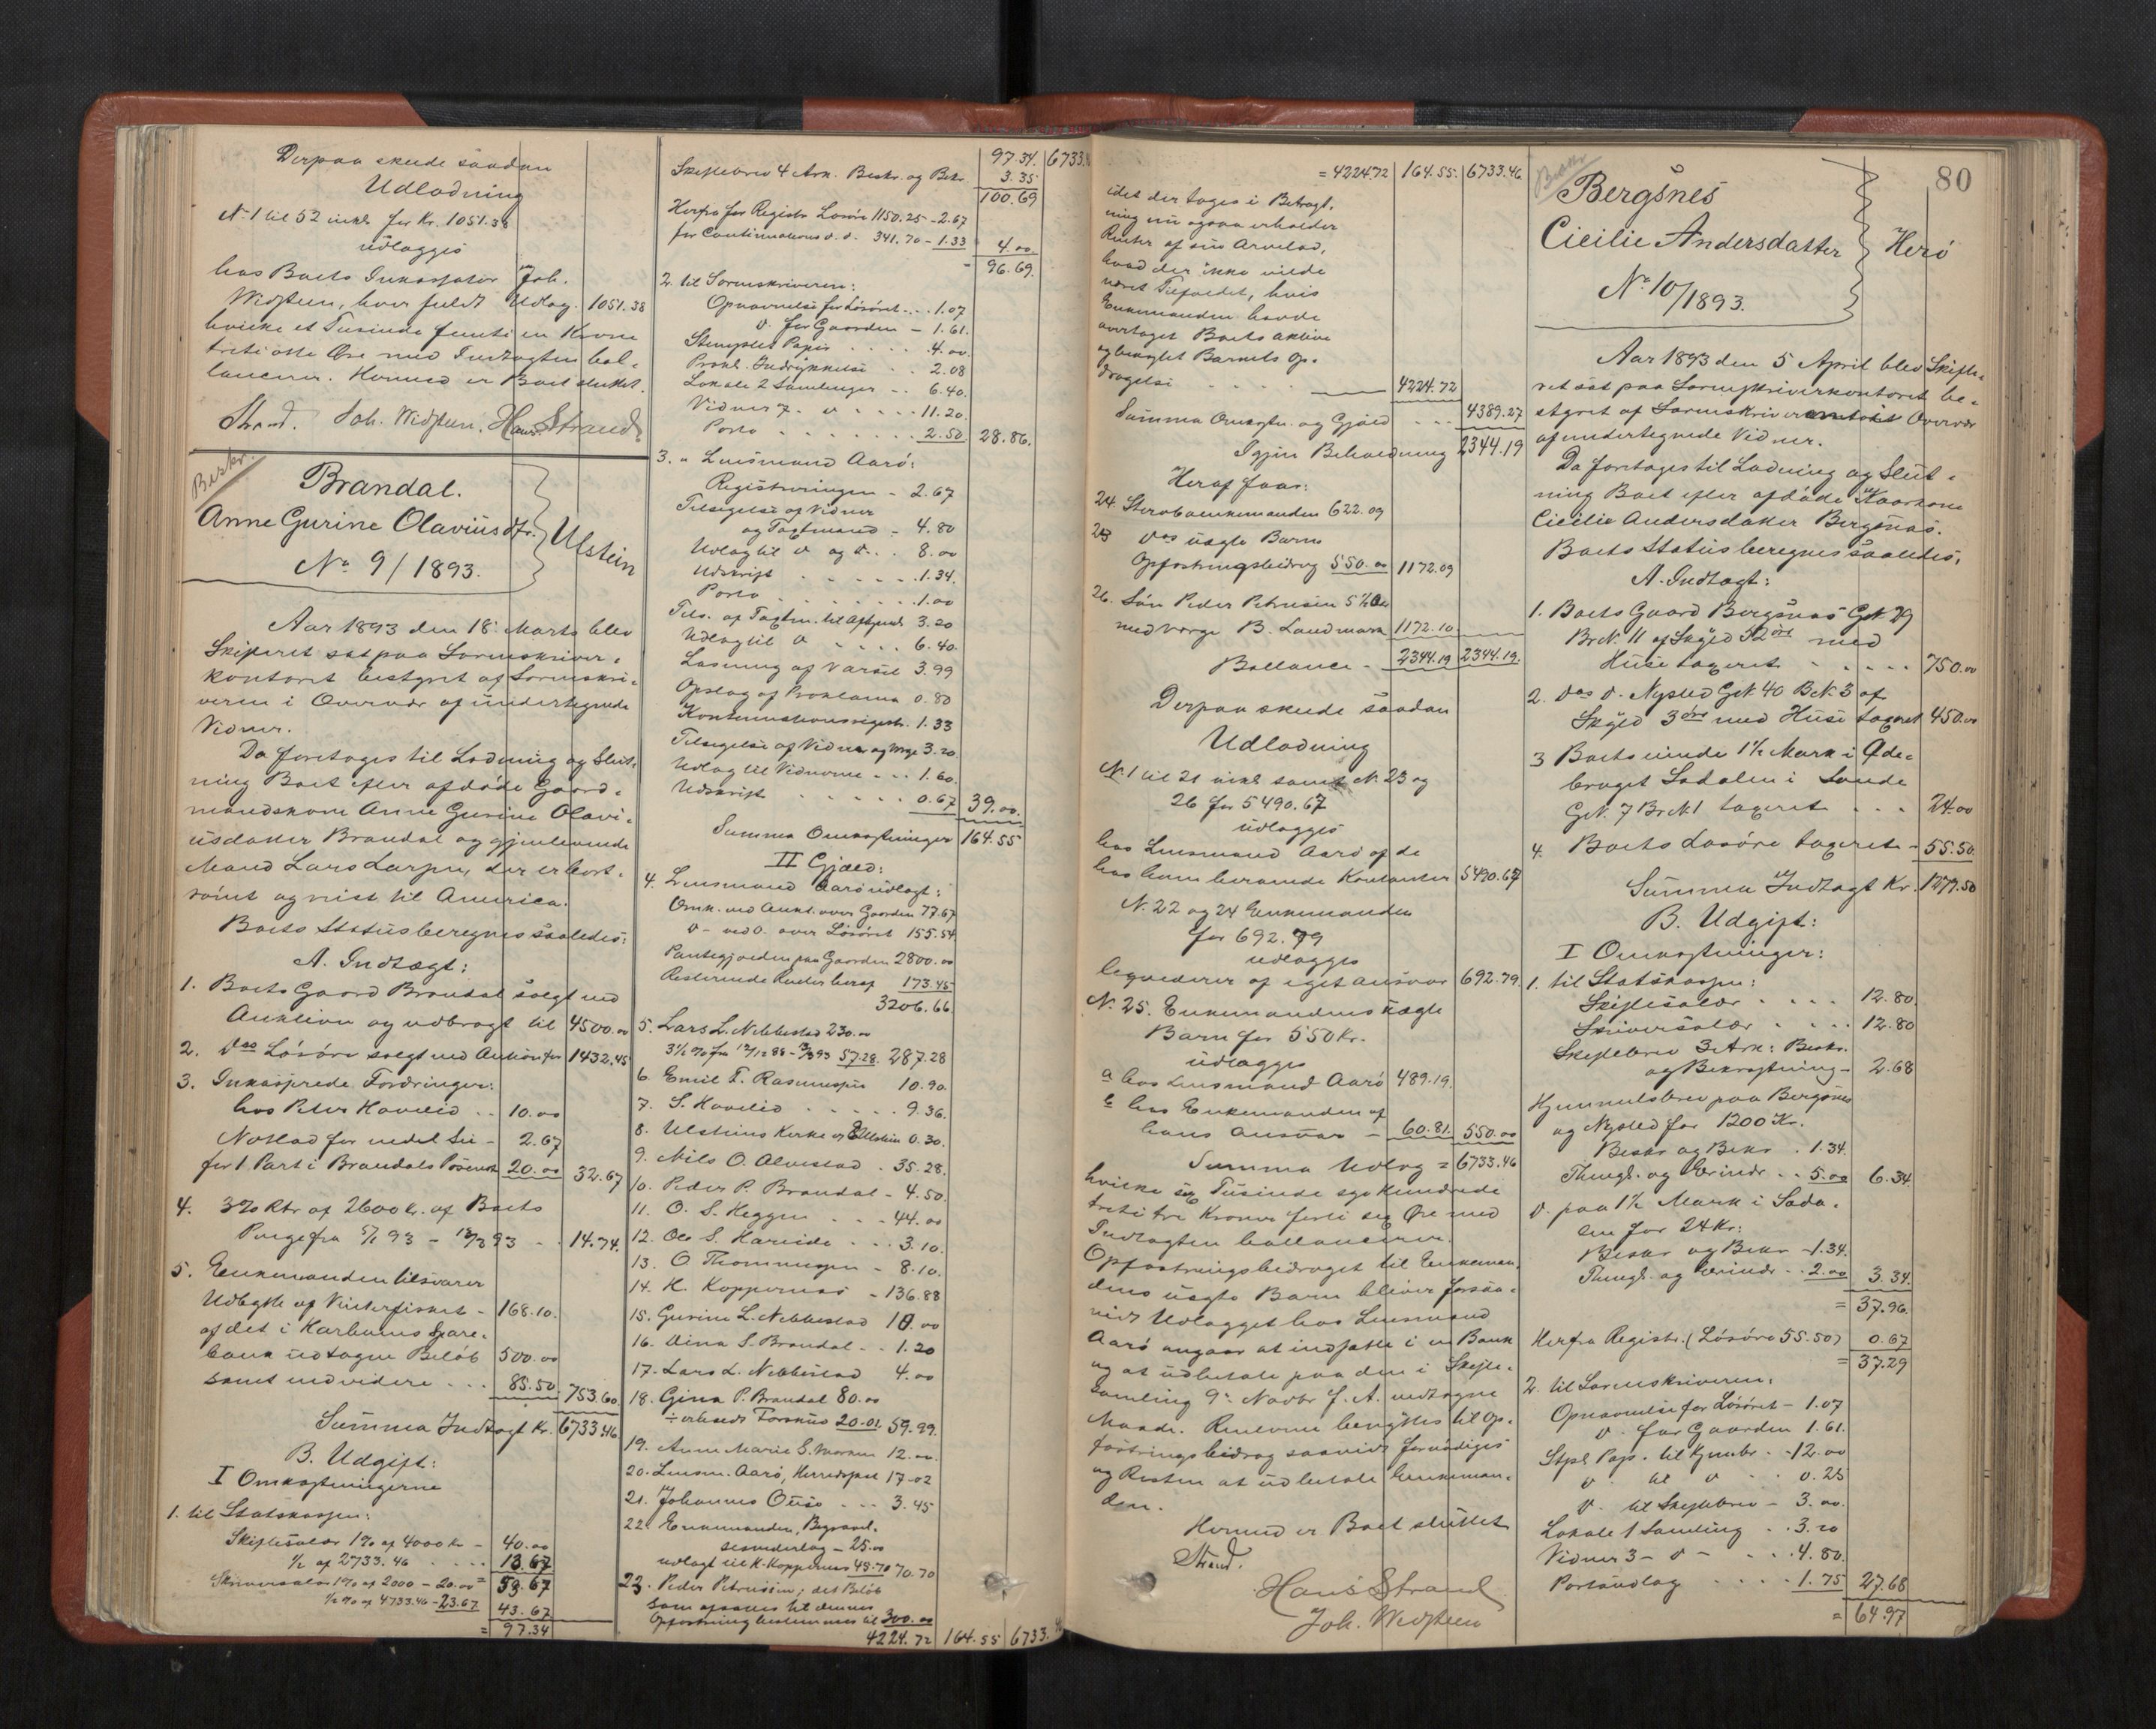 Derpaa skede saadan
Udlodning
No 1 til 52 inkl. for Kr. 1051.38
udlægges
hos Boets Inkassator Joh.
Widsteen, hvor fuldt Udlæg. 1051.38
hvilke et Tusinde femti en Krone
treti otte Øre med Indtægten bal-
lancerer. Hermed er Boet sluttet.
Strand. Joh. Widsteen. Hans Strand
Beskr.
Brandal.
Anne Gurine Olaviusdtr. Ulstein
No 9/1893.
Aar 1893 den 18 Marts blev
Skifteret sat paa Sorenskriver-
kontoret bestyret af Sorenskri-
veren i Overvær af undertegnede
Vidner.
Da foretoges til Lodning og Slut-
ning Boet efter afdøde Gaard-
mandskone Anne Gurine Olavi-
usdatter Brandal og gjenlevende
Mand Lars Larsen, der er bort-
rømt og reist til America.
Boets Status beregnes saaledes:
A. Indtægt:
1. Boets Gaard Brandal solgt ved
Auktion og udbragt til 4500.00
2. Do Løsøre solgt ved Auktion for 1432.45
3. Inkasserede Fordringer:
hos Peter Havelid .. 10.00
Notlod for nedel Sei - 2.67
for 1 Part i Brandals 20.00 32.67
4. 3% Rtr af 2600 kr. af Boets
Penge fra 5/1 93 - 18/3 93 .. 14.74.
5. Enkemanden tilsvarer
Udbytte af Vinterfisket - 168.10.
af det i Spare-
bank udtagne Beløb 500.00
samt med videre ... 85.50 753.60
Summa Indtægt Kr. 6733.46
B. Udgift:
I Omkostningerne
1. til Statskassen:
Skiftesalær 1% af 4000 kr - 40.00
1/2 af 2733.46 .... 13.67
53.67
Skriversalær 1% af 2000 - 20.00
1/2 % af 4733.46 - 23.67 43.67
= 97.34
97.34. 6733.46
Skiftebrev 4 Ark. Beskr. og Bekr. 3.35
100.69
Herfra for Registr. Løsøre 1150.25 - 2.67
for Continuations d. d. 341.70 - 1.33 4.00
= 96.69.
2. til Sorenskriveren:
Opnævnelse for Løsøret ... 1.07
d. for Gaarden - 1.61.
Stemplet Papir .... 4.00.
Prokl. Indrykkelse .. 2.08
Lokale 2 Samlinger .. 6.40.
Vidner 7. d .... 11.20.
Porto ....... 2.50. 28.86.
3. " Lensmand Aarø:
Registreringen - 2.67
Tilsigelse af Vidner
og Taxtmænd - 4.80
Udlæg til d og d .. 8.00
Udskrift ..... 1.34.
Porto ...... 1.00
Tils. af Taxtm. til 3.20
Udlæg til d .... 6.40.
Læsning af Varsel 3.99
Opslag af Proklama 0.80
Kontinuationsregistr. 1.33
Tilsigelse af Vidner og Verge 3.20
Udlæg til Vidnerne ... 1.60.
Udskrift ...... 0.67 39.00.
Summa Omkostninger 164.55
II Gjæld:
4. Lensmand Aarø udlagt:
Omk. ved Aukt. over Gaarden 77.67
d - ved d. over Løsøret 155.54
Pantegjælden paa Gaarden 2800.00
Resterende Renter heraf 173.45
3206.66.
5. Lars L. Nebbestad 230.00
3 1/2 % fra 57.28. 287.28
6. Emil T. Rasmussen 10.90.
7. S. Havelid ..... 9.36.
8. Ulsteins Kirke 0.30.
9. Nils O. Alvestad . 35.28.
10. Peder P. Brandal - 4.50.
11. O. S. Heggen ... 44.00
12. Ole S. Hareide ... 3.10.
13. O. Thommesen - 8.10.
14. K. Koppernæs - 136.88
15. Gurine L. Nebbestad 10.00
16. Dina S. Brandal .. 1.20
17. Lars L. Nebbestad 4.00
18. Gina P. Brandal 80.00
÷ erholdt Forskud 20.01. 59.99.
19. Anne Marie S. 12.00.
20. Lensm. Aarø, Herredsskat 17.02
21. Johannes ... 3.45
22. Enkemanden, Begravel-
sesvederlag - 25.00
udlagt til K. Koppernæs 45.70 70.70
23. Peder Petrusen; det Beløb
som afsættes til dennes
Opfostring bestemmes til 300.00
4224.72 164.55 6733.46
= 4224.72 164.55. 6733.46.
idet der tages i Betragt-
ning nu ogsaa erholder
Renter af sin Arvelod,
hvad der ikke vilde
været Tilfældet, hvis
Enkemanden havde
overtaget Boets aktiva
og besørget Barnets Op-
dragelse ..... 4224.72
Summa Omkostn. og Gjæld ... 4389.27
Igjen Beholdning 2344.19
Heraf faar:
24. Sterboenkemanden 622.09
25 Dos uægte Barn
Opfostringsbidrag 550.00 1172.09
26. Søn Peder Petrusen 5 1/2 Aar
med Verge B. Landmark 1172.10.
Ballance - 2344.19 2344.19.
Derpaa skede saadan
Udlodning
No 1 til 21 inkl. samt No. 23 og
26 for 5490.67
udlægges
hos Lensmand Aarø af de
hos ham beroende Kontanter 5490.67
No. 22 og 24 Enkemanden
for 692.79
udlægges
af eget ansvar 692.79.
No. 25. Enkemandens uægte
Barn for 550 Kr.
udlægges
a hos Lensmand Aarø 489.19.
b hos Enkemanden af
hans ansvar - 60.81. 550.00
Summa Udlæg = 6733.46
hvilke sex Tusinde syv hundrede
treti tre Kroner forti sex Øre med
Indtægten ballancerer.
Opfostringsbidraget til Enkeman-
dens uægte Barn bliver forsaa-
vidt Udlægget hos Lensmand
Aarø angaar at indsætte i en Bank
og at udbetale paa den i Skifte-
samling 9. Novbr f. A. vedtagne
Maade. Renterne benyttes til Op-
fostringsbidrag saavidt fornødiges
og Resten at udbetale Enkeman-
den.
Hermed er Boet sluttet
Strand.
Hans Strand
Joh. Widsteen
80
Beskr
Bergsnes
Cicilie Andersdatter Herø
No 10/1893.
Aar 1893 den 5 April blev Skifte-
ret sat paa Sorenskriverkontoret be-
styret af Sorenskriveren i Overvær
af undertegnede Vidner.
Da foretoges til Lodning og Slut-
ning Boet efter afdøde Kaarkone
Cicilie Andersdatter Bergsnæs.
Boets Status beregnes saaledes;
A. Indtægt:
1. Boets Gaard Bergsnæs GNo. 29
BrNo 11 af Skyld 32 øre med
Huse taxeret ..... 750.00
2. Dos d. Nysted GNo. 40 BNo. 3 af
Skyld 3 øre med Huse taxeret 450.00
3 Boets eiende 1 1/2 Mark i Øde-
bruget Sædalen i Sande
GNo. 7 BrNo. 1 taxeret ... 24.00
4. Boets Løsøre taxeret - 55.50.
Summa Indtægt Kr. 1279.50
B. Udgift:
I Omkostninger:
1. til Statskassen:
Skiftesalær .... 12.80.
Skriversalær .... 12.80
Skiftebrev 3 Ark: Beskr.
og Bekræftning - 2.68
Hjemmelsbrev paa Bergsnes
og Nysted for 1200 Kr.
Beskr og Bekr . 1.34.
Thingl. og Erindr .. 5.00 6.34.
d. paa 1 1/2 Mark i Sæda-
len for 24 Kr:
Beskr og Bekr - 1.34.
Thingl. og Erindr .. 2.00 3.34.
= 37.96.
Herfra Registr. (Løsøre 55.50) 0.67
= 37.29
2. til Sorenskriveren:
Opnævnelse for Løsøret - 1.07
d. for Gaarden 1.61.
Stpl Pap. til Hjembr. - 12.00
d. til d .. 0.25
d. til Skiftebrev - 3.00.
Lokale 1 Samling .. 3.20
Vidner 3 - d - ... 4.80.
Portoudlæg .... 1.75 27.68
= 64.97